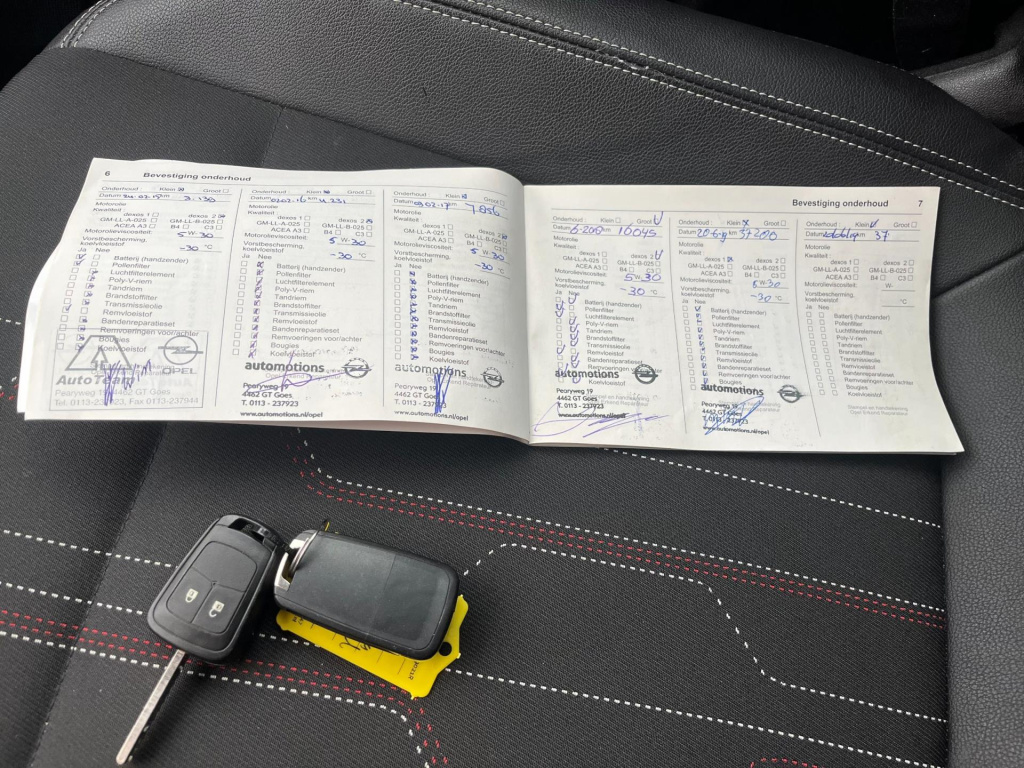 6 Bevestiging onderhoud
Onderhoud: Klein Groot
Datum km
Motorolie
Kwaliteit: dexos 1 dexos 2
GM-LL-A-025 GM-LL-B-025
ACEA A3 B4 C3
Motorolieviscositeit: 5 W-30
Vorstbescherming, koelvloeistof -30 °C
Ja Nee
Batterij (handzender)
Pollenfilter
Luchtfilterelement
Poly-V-riem
Tandriem
Brandstoffilter
Transmissieolie
Remvloeistof
Bandenreparatieset
Remvoeringen voor/achter
Bougies
Koelvloeistof
AutoTeam
OPEL
4462 GT Goes
Onderhoud: Klein Groot
Datum km
Motorolie
Kwaliteit: dexos 1 dexos 2
GM-LL-A-025 GM-LL-B-025
ACEA A3 B4 C3
Motorolieviscositeit: 5 W-30
Vorstbescherming, koelvloeistof -30 °C
Ja Nee
Batterij (handzender)
Pollenfilter
Luchtfilterelement
Poly-V-riem
Tandriem
Brandstoffilter
Transmissieolie
Remvloeistof
Bandenreparatieset
Remvoeringen voor/achter
Bougies
Koelvloeistof
automotions
Pearyweg 19
4462 GT Goes
T. 0113 - 237923
www.automotions.nl/opel
Onderhoud: Klein Groot
Datum km 7.856
Motorolie
Kwaliteit: dexos 1 dexos 2
GM-LL-A-025 GM-LL-B-025
ACEA A3 B4 C3
Motorolieviscositeit: 5 W-30
Vorstbescherming, koelvloeistof -30 °C
Ja Nee
Batterij (handzender)
Pollenfilter
Luchtfilterelement
Poly-V-riem
Tandriem
Brandstoffilter
Transmissieolie
Remvloeistof
Bandenreparatieset
Remvoeringen voor/achter
Bougies
Koelvloeistof
automotions
Pearyweg 19
4462 GT Goes
T. 0113 - 237923
www.automotions.nl/opel
Bevestiging onderhoud 7
Onderhoud: Klein Groot
Datum km 16045
Motorolie
Kwaliteit: dexos 1 dexos 2
GM-LL-A-025 GM-LL-B-025
ACEA A3 B4 C3
Motorolieviscositeit: 5 W-30
Vorstbescherming, koelvloeistof -30 °C
Ja Nee
Batterij (handzender)
Pollenfilter
Luchtfilterelement
Poly-V-riem
Tandriem
Brandstoffilter
Transmissieolie
Remvloeistof
Bandenreparatieset
Remvoeringen voor/achter
Bougies
Koelvloeistof
automotions
Pearyweg 19
4462 GT Goes
T. 0113 - 237923
www.automotions.nl/opel
Onderhoud: Klein Groot
Datum km 37200
Motorolie
Kwaliteit: dexos 1 dexos 2
GM-LL-A-025 GM-LL-B-025
ACEA A3 B4 C3
Motorolieviscositeit: 5 W-30
Vorstbescherming, koelvloeistof -30 °C
Ja Nee
Batterij (handzender)
Pollenfilter
Luchtfilterelement
Poly-V-riem
Tandriem
Brandstoffilter
Transmissieolie
Remvloeistof
Bandenreparatieset
Remvoeringen voor/achter
Bougies
automotions
Pearyweg 19
4462 GT Goes
T. 0113 - 237923
www.automotions.nl/opel
Onderhoud: Klein Groot
Datum km 37
Motorolie
Kwaliteit: dexos 1 dexos 2
GM-LL-A-025 GM-LL-B-025
ACEA A3 B4 C3
Motorolieviscositeit: W-
Vorstbescherming, koelvloeistof °C
Ja Nee
Batterij (handzender)
Pollenfilter
Luchtfilterelement
Poly-V-riem
Tandriem
Brandstoffilter
Transmissieolie
Remvloeistof
Bandenreparatieset
Remvoeringen voor/achter
Bougies
Koelvloeistof